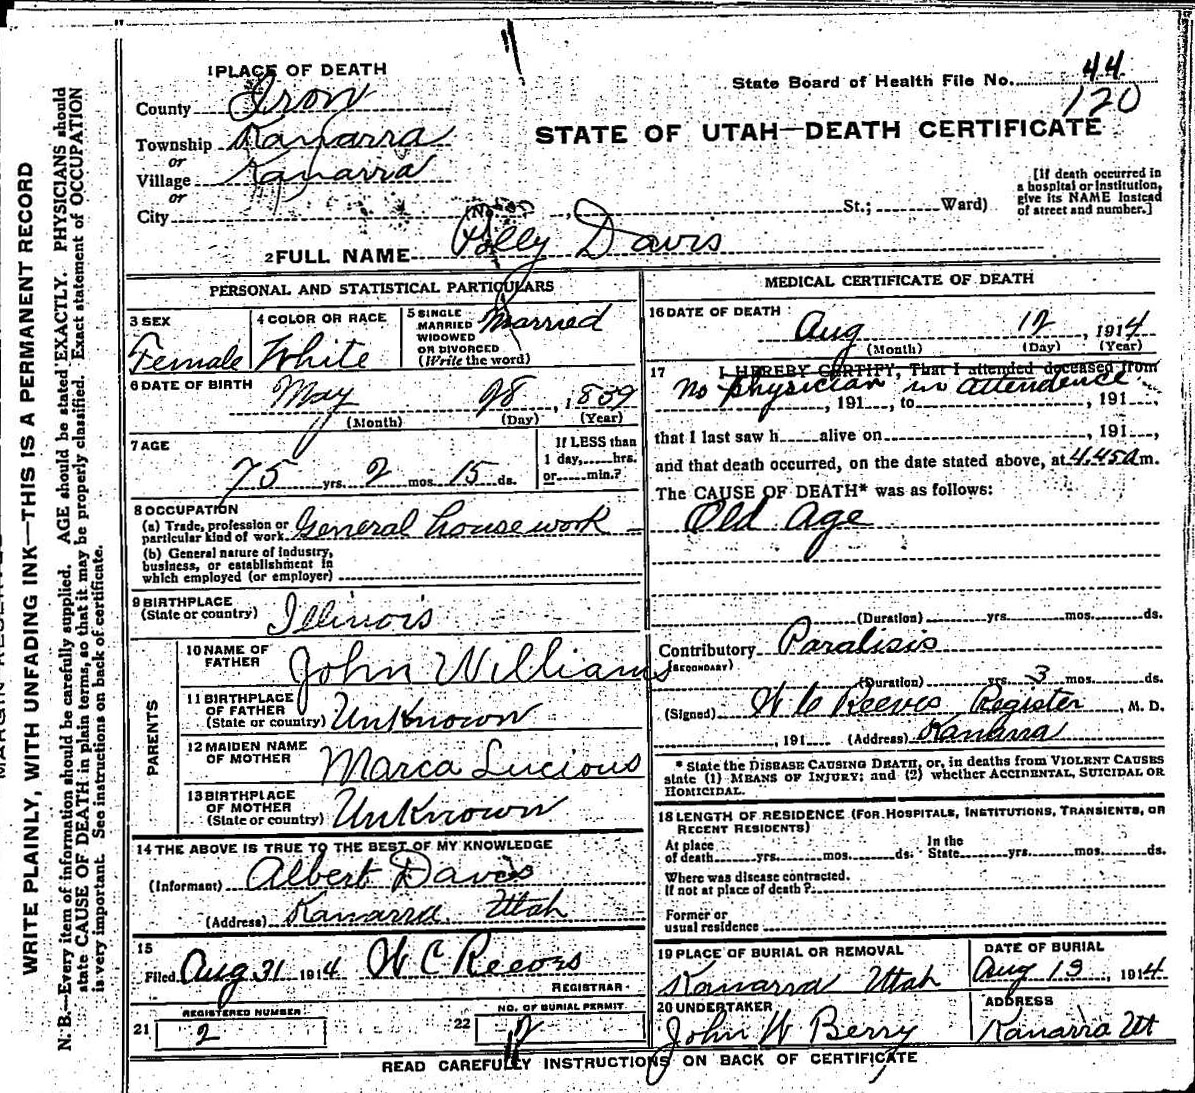 MARGIN RESERVED
WRITE PLAINLY, WITH UNFADING INK—THIS IS A PERMANENT RECORD
N. B.—Every item of information should be carefully supplied. AGE should be stated EXACTLY. PHYSICIANS should
state CAUSE OF DEATH in plain terms, so that it may be properly classified. Exact statement of OCCUPATION
is very important. See instructions on back of certificate.
1 PLACE OF DEATH
County Iron
Township Kanarra
or
Village Kanarra
or
City
State Board of Health File No. 44
120
STATE OF UTAH—DEATH CERTIFICATE
[If death occurred in
a hospital or institution,
give its NAME instead
of street and number.]
(No. St.; Ward)
2 FULL NAME Polly Davis
PERSONAL AND STATISTICAL PARTICULARS
3 SEX
Female
4 COLOR OR RACE
White
5 SINGLE
MARRIED
WIDOWED
OR DIVORCED
(Write the word)
Married
6 DATE OF BIRTH
May 28, 1839
(Month) (Day) (Year)
7 AGE
75 yrs. 2 mos. 15 ds.
If LESS than
1 day, hrs.
or min.?
8 OCCUPATION
(a) Trade, profession or
particular kind of work General housework
(b) General nature of industry,
business, or establishment in
which employed (or employer)
9 BIRTHPLACE
(State or country) Illinois
PARENTS
10 NAME OF
FATHER John Williams
11 BIRTHPLACE
OF FATHER
(State or country) UnKnown
12 MAIDEN NAME
OF MOTHER Marca Lucious
13 BIRTHPLACE
OF MOTHER
(State or country) UnKnown
14 THE ABOVE IS TRUE TO THE BEST OF MY KNOWLEDGE
(Informant) Albert Davis
(Address) Kanarra Utah
15
Filed Aug 31 1914 W C Reeves
REGISTRAR
REGISTERED NUMBER
21 2
NO. OF BURIAL PERMIT
22 2
MEDICAL CERTIFICATE OF DEATH
16 DATE OF DEATH
Aug 12, 1914
(Month) (Day) (Year)
17 I HEREBY CERTIFY, That I attended deceased from
No physician in attendence
, 191 , to , 191 ,
that I last saw h alive on , 191 ,
and that death occurred, on the date stated above, at 4.45 a m.
The CAUSE OF DEATH* was as follows:
Old Age
(Duration) yrs. mos. ds.
Contributory Paralisis
(SECONDARY)
(Duration) yrs. 3 mos. ds.
(Signed) W C Reeves Register, M. D.
, 191 (Address) Kanarra
* State the DISEASE CAUSING DEATH, or, in deaths from VIOLENT CAUSES
state (1) MEANS OF INJURY; and (2) whether ACCIDENTAL, SUICIDAL OR
HOMICIDAL.
18 LENGTH OF RESIDENCE (FOR HOSPITALS, INSTITUTIONS, TRANSIENTS, OR
RECENT RESIDENTS)
At place
of death yrs. mos. ds.
In the
State yrs. mos. ds.
Where was disease contracted.
If not at place of death?
Former or
usual residence
19 PLACE OF BURIAL OR REMOVAL
Kanarra Utah
DATE OF BURIAL
Aug 13, 1914
20 UNDERTAKER
John W Berry
ADDRESS
Kanarra Ut
READ CAREFULLY INSTRUCTIONS ON BACK OF CERTIFICATE